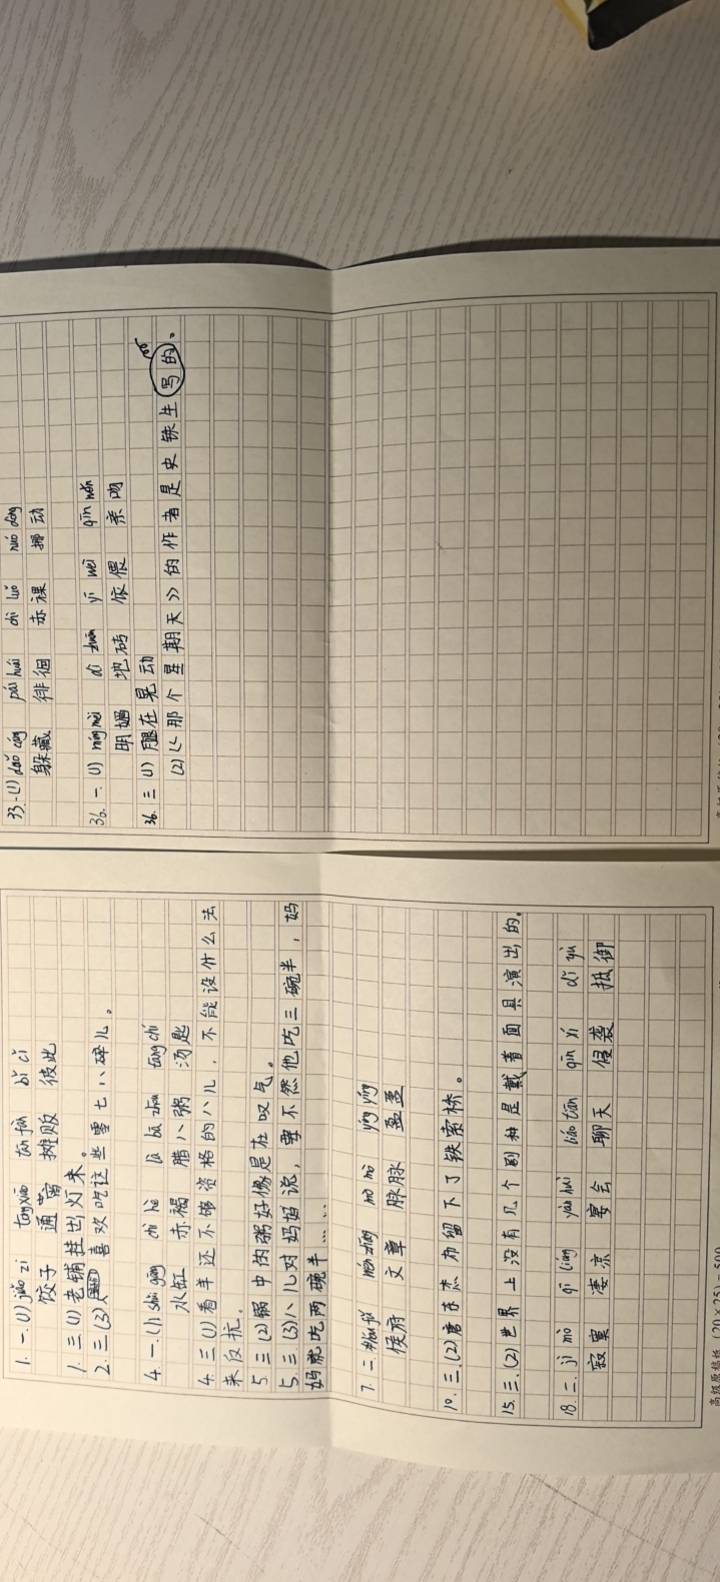 1. 一. (1) jiǎo zi tōng xiāo tān fàn bǐ cǐ
饺子 通宵 摊贩 彼此
1. 三 (1) 老铺挂出灯来。
2. 三 (3) 人喜欢吃这些零七八碎儿。
4. 一. (1). shuǐ gāng chì hè là bā zhōu tāng chí
水缸 赤褐 腊八粥 汤匙
4. 三 (1) 看羊还不够资格的八儿，不能设什么法
来反抗。
5. 三 (2) 锅中的粥好像是在叹气。
5. 三 (3) 八儿对妈妈说，要不然他吃三碗半，妈
妈就吃两碗半……
7. 二. wén zhāng mò mò yíng yíng
文章 脉脉 盈盈
10. 三. (2) 唐东杰布留下了铁索桥。
15. 三. (2) 世界上没有几个剧种是戴着面具演出的。
18. 二. jì mò qī liáng yàn huì liáo tiān qīn xí dǐ yù
寂寞 凄凉 宴会 聊天 侵袭 抵御
33. (1) duǒ cáng pái huái chì luǒ nuó dòng
躲藏 徘徊 赤裸 挪动
36. 一 (1) míng mèi dì zhuān yī wēi qīn wěn
明媚 地砖 依偎 亲吻
36. 三 (1) 腿在晃动
(2) 《那个星期天》的作者是史铁生写的。
高级原稿纸 (20×25) = 500